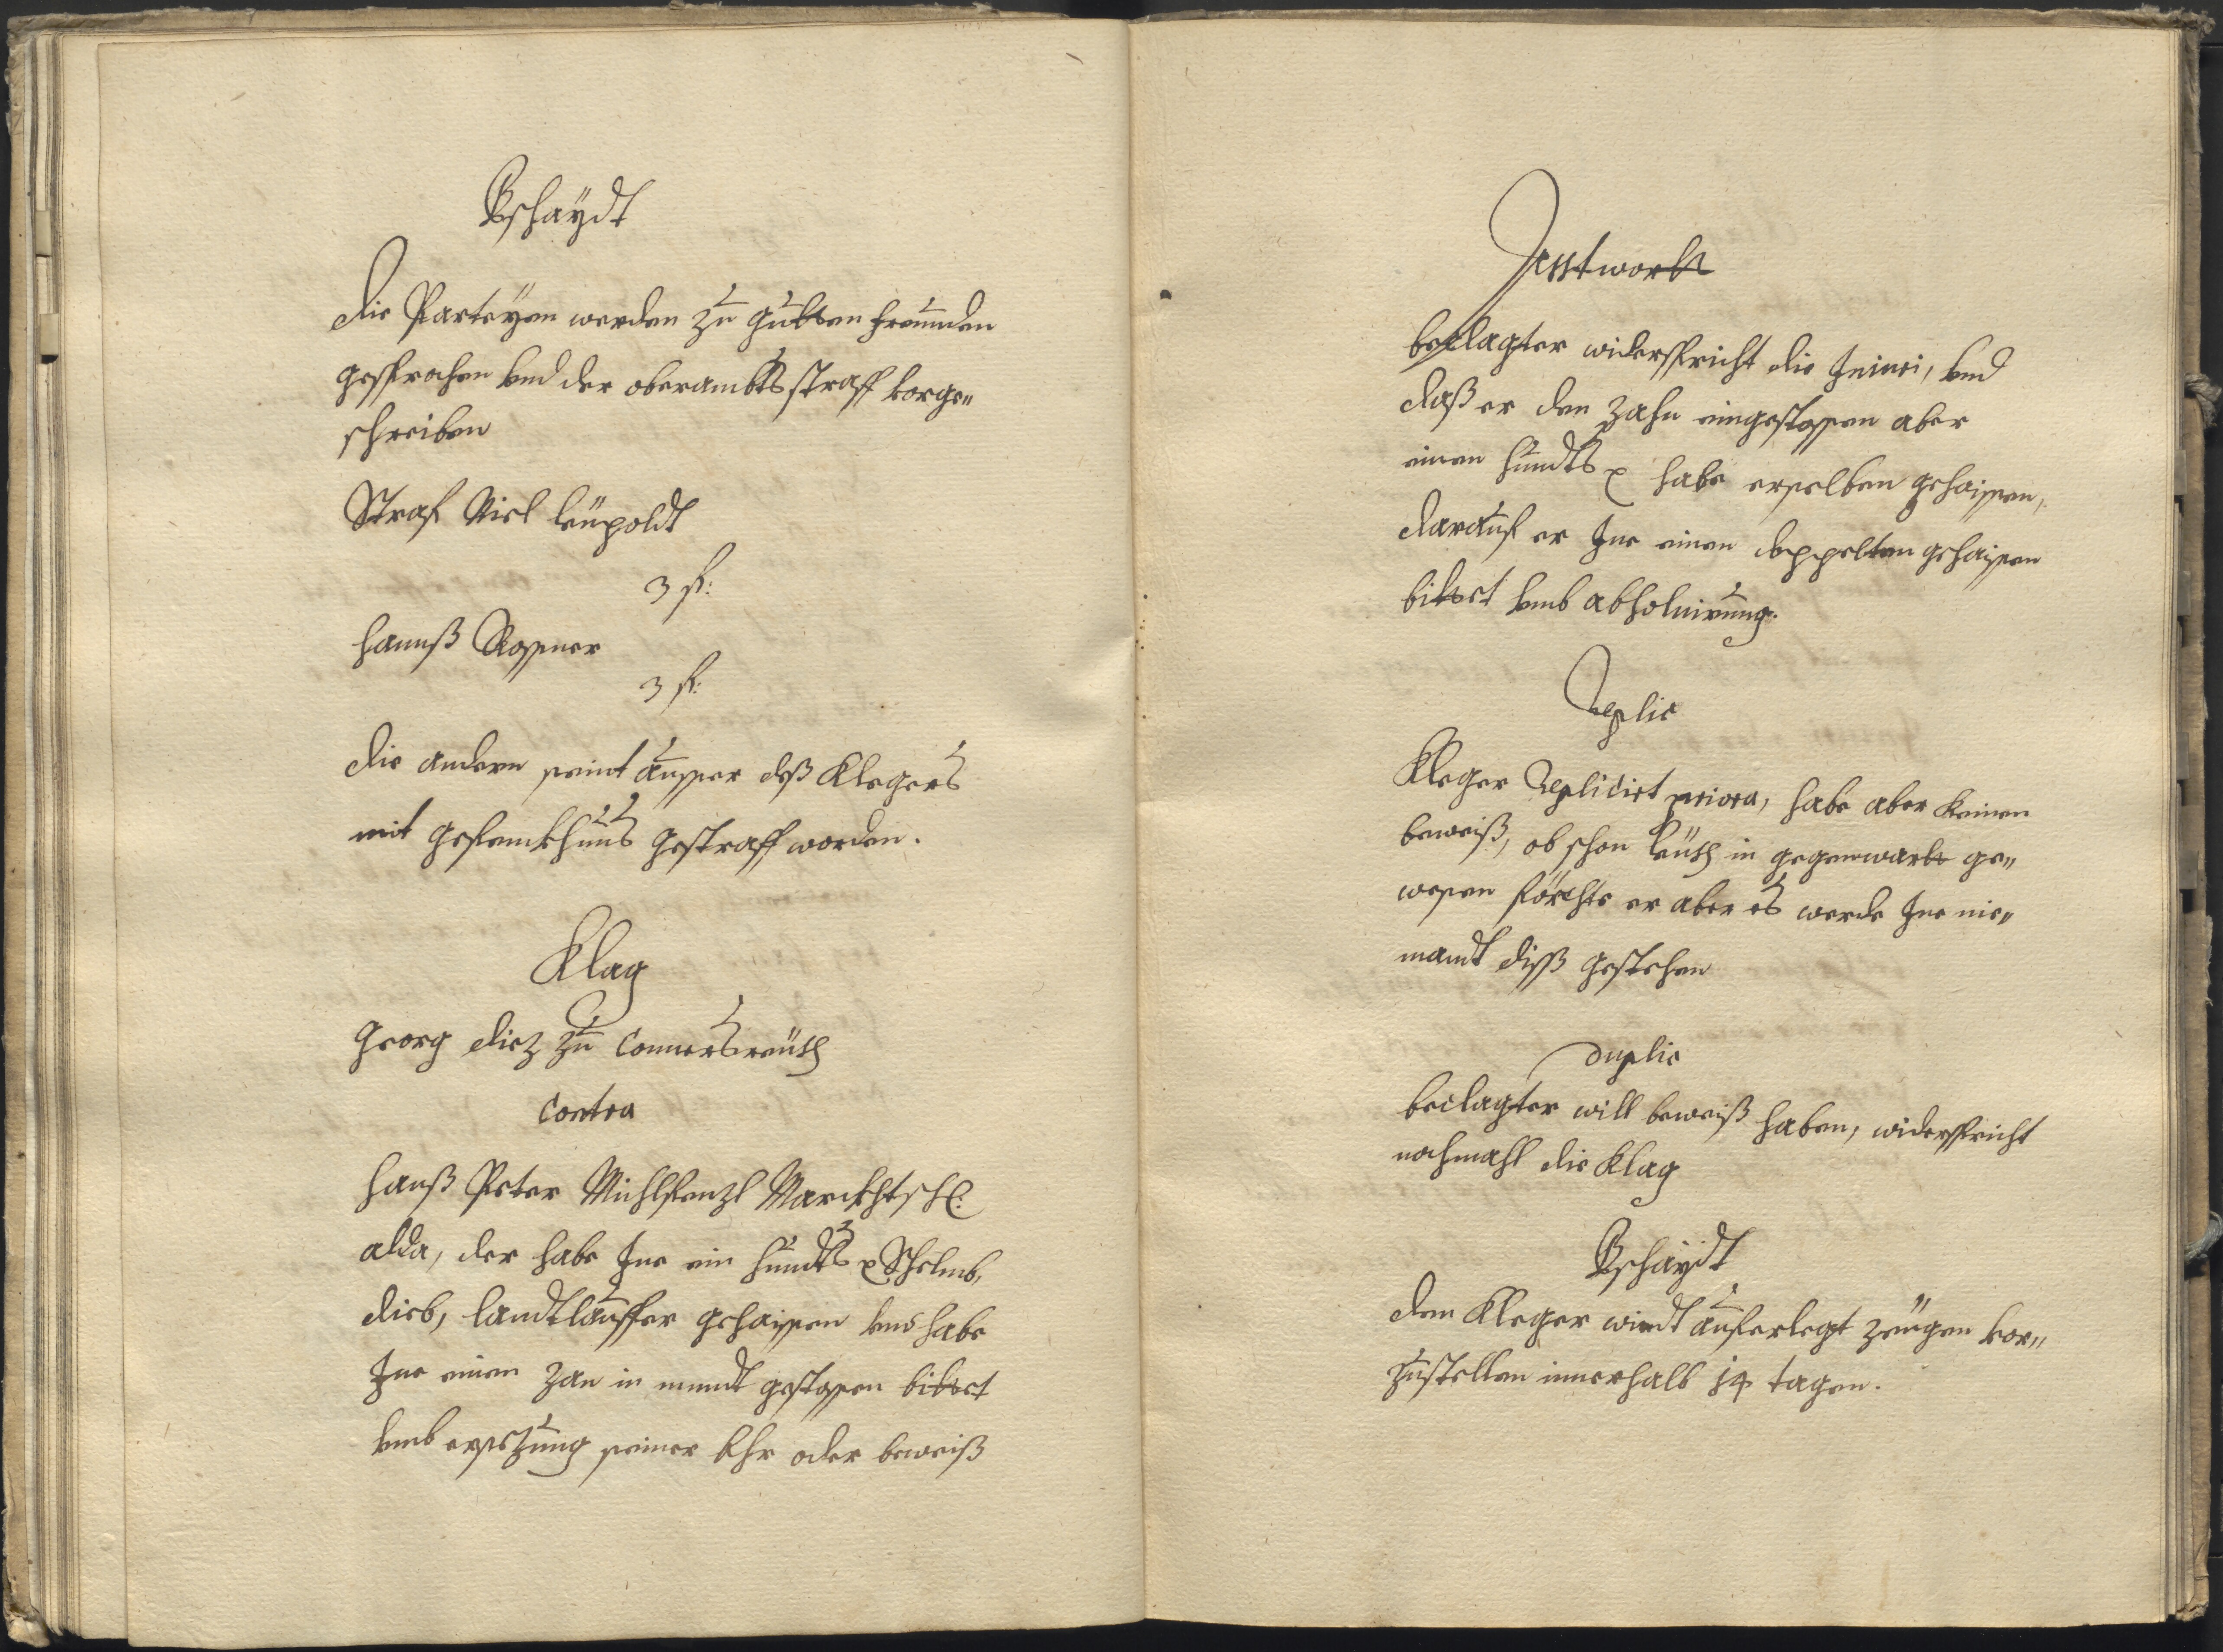 Bschaÿdt
die Parteÿen werden zu gutten freunden
gesprochen und der oberambtsstraff vorge„
schreiben
Straf Niel leüpoldt
3 fl:
Hannß Rosner
3 fl:
die andern seint ausser deß Klegers
mit gefenckhnus gestrafft worden.
Klag
Georg diez zu Connersreüth
Contra
Hanß Peter Michl
alda, der habe Jne ein hundts ꝛ Schelmb,
dieb, landtläuffer gehaissen und habe
Jne einen Zan in mundt gestossen bittet
umb ersezung seiner Ehr oder beweiß
Anttwortt
beclagter widerspricht die Jniuri, und
daß er den Zahn eingestossen aber
einen hundts ꝛ habe erselben gehaissen,
darauf er Jne einen doppelten gehaissen
bittet umb abholuirung.
Replic
Kleger Replicirt priora, habe aber keinen
beweiß, ob schon leüth in gegenwartt ge„
wesen förchte er aber es werde Jne nie„
mandt diß gestehen
Duplic
beclagter will beweiß haben, widerspricht
nochmahl die Klag
Bschaÿdt
dem Kleger wirdt auferlegt zeügen vor„
zustellen innerhalb 14 tagen.